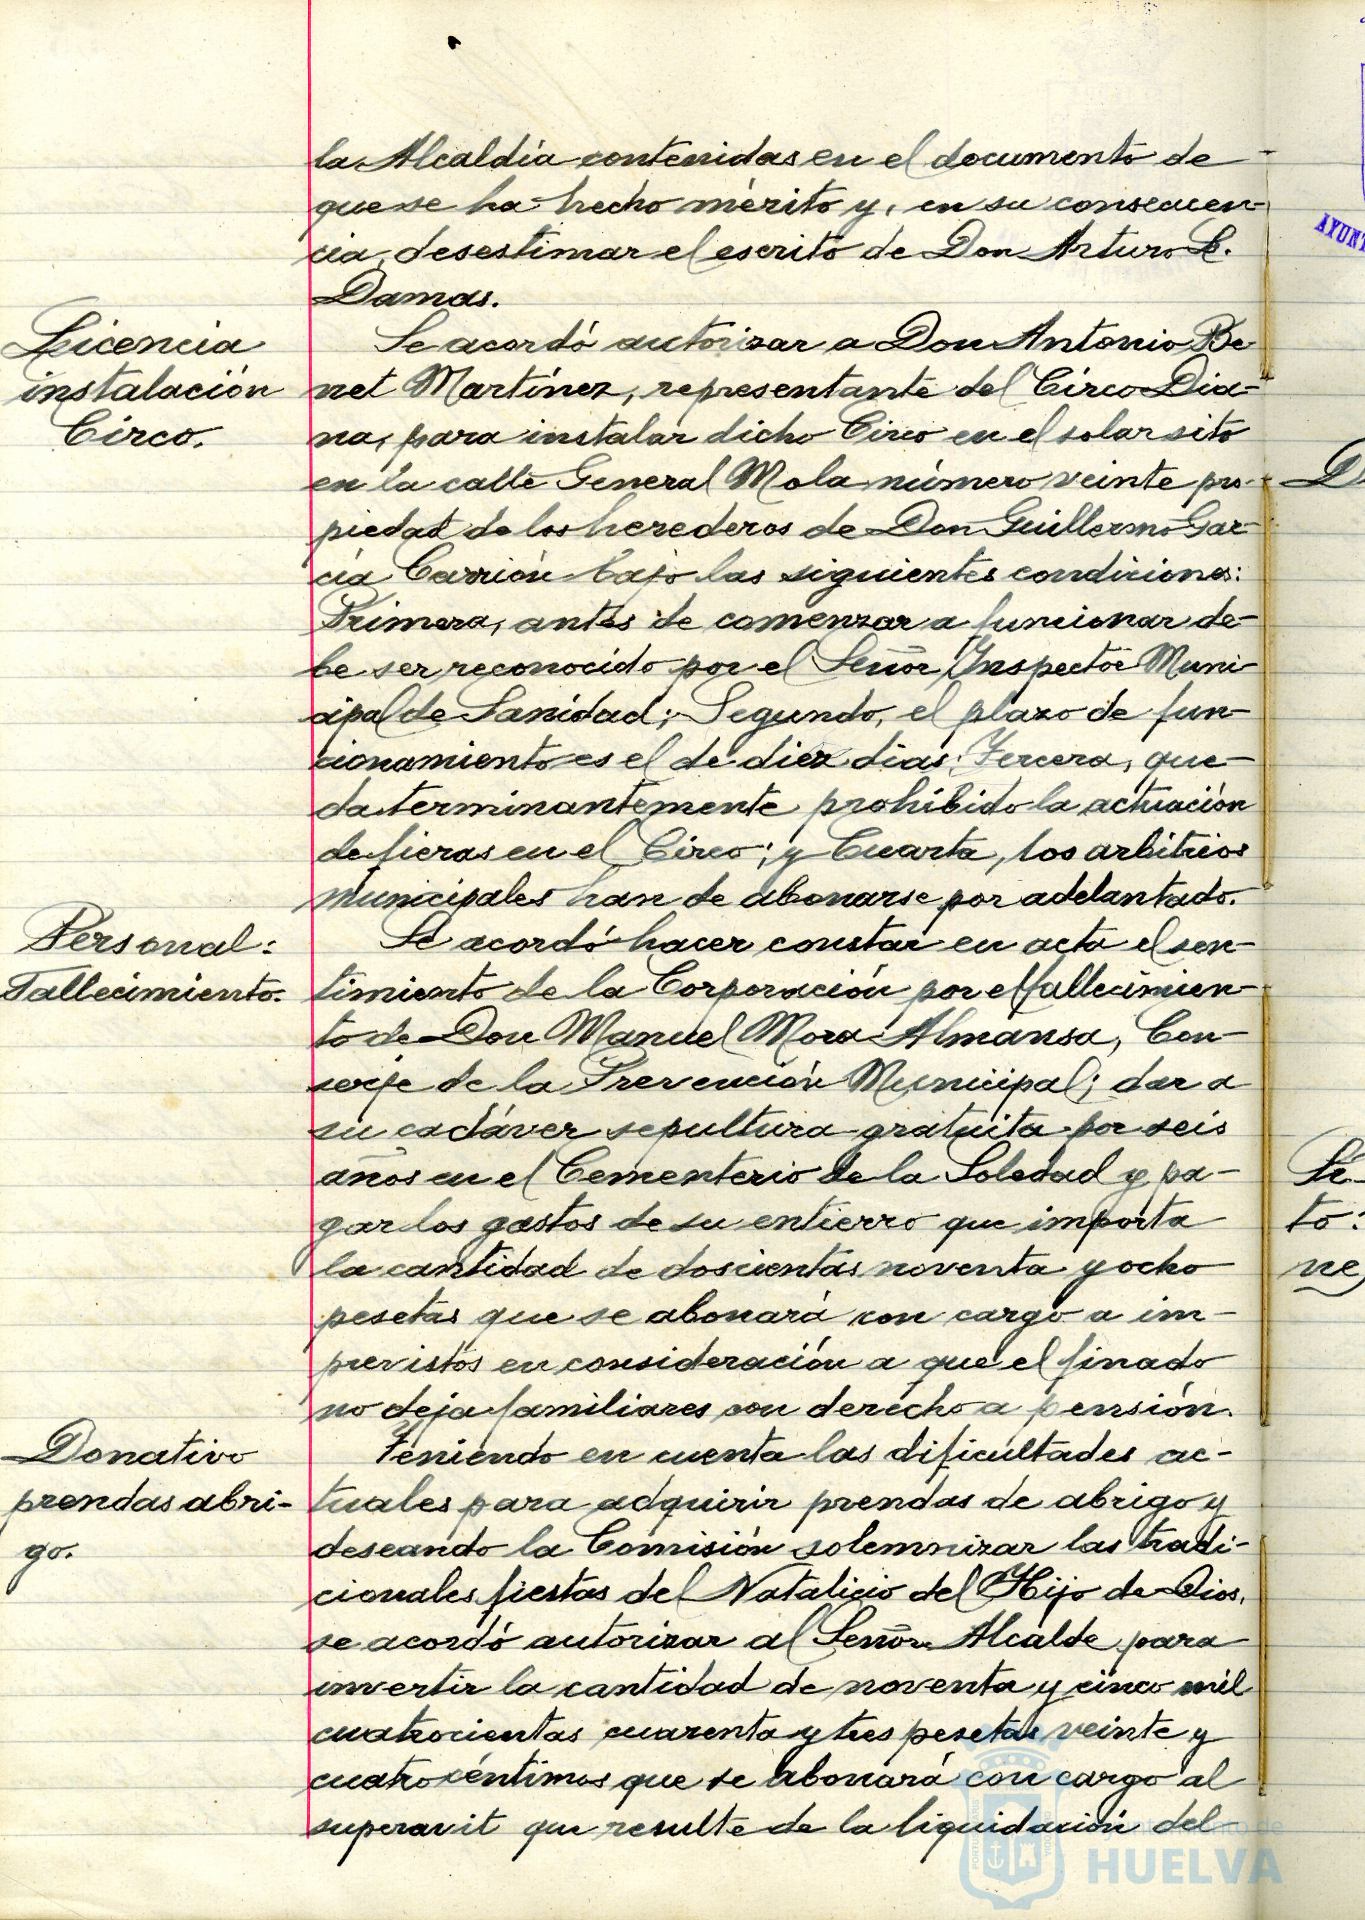 la Alcaldía contenidas en el documento de
que se ha hecho mérito y, en su consecuen-
cia, desestimar el escrito de Don Arturo L.
Damas.
Licencia
instalación
Circo.
Se acordó autorizar a Don Antonio Be
net Martínez, representante del Circo Dia-
na, para instalar dicho Circo en el solar sito
en la calle General Mola número veinte pro-
piedad de los herederos de Don Guillermo Gar-
cía Carrión bajo las siguientes condiciones:
Primera, antes de comenzar a funcionar de-
be ser reconocido por el Señor Inspector Muni-
cipal de Sanidad; Segundo, el plazo de fun-
cionamiento es el de diez dias; Tercera, que-
da terminantemente prohibido la actuación
de fieras en el Circo; y Cuarta, los arbitrios
municipales han de abonarse por adelantado.
Personal:
Fallecimiento.
Se acordó hacer constar en acta el sen-
timiento de la Corporación por el fallecimien-
to de Don Manuel Mora Almansa, Con-
serje de la Prevención Municipal; dar a
su cadáver sepultura gratuita por seis
años en el Cementerio de la Soledad y pa-
gar los gastos de su entierro que importa
la cantidad de doscientas noventa y ocho
pesetas que se abonará con cargo a im-
previstos en consideración a que el finado
no deja familiares con derecho a pensión.
Donativo
prendas abri-
go.
Teniendo en cuenta las dificultades ac-
tuales para adquirir prendas de abrigo y
deseando la Comisión solemnizar las tradi-
cionales fiestas del Natalicio del Hijo de Dios,
se acordó autorizar al Señor Alcalde para
invertir la cantidad de noventa y cinco mil
cuatrocientas cuarenta y tres pesetas veinte y
cuatro céntimos que se abonará con cargo al
superavit que resulte de la liquidación del
Ayuntamiento de
HUELVA
AYUNT
D
Pé-
to:
ne